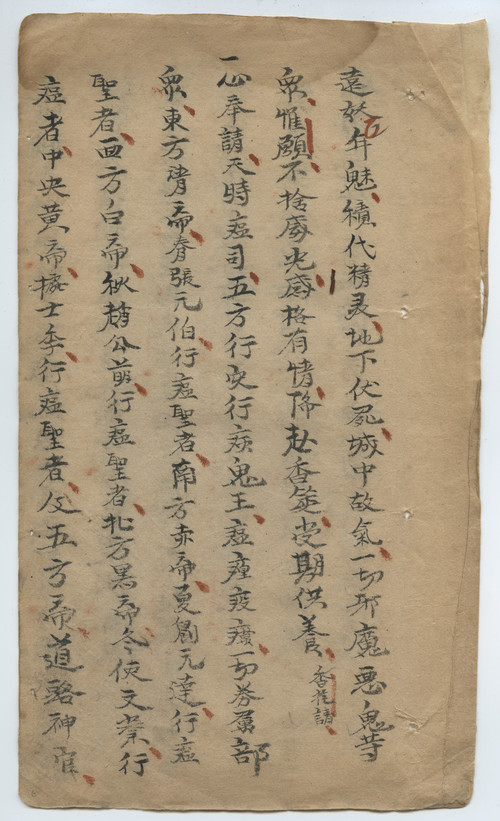 遠於年魅積代精灵地下伏屍城中故氣一切邪魔惡鬼等
衆惟願不捨威光感格有情降赴香筵受期供養香花請
一心奉請天時瘟司五方行灾行疾鬼王瘟瘽疫癘一切券属部
衆東方青帝春張元伯行瘟聖者南方赤帝夏劉元達行瘟
聖者西方白帝秋趙公萌行瘟聖者北方黑帝冬使文業行
瘟者中央黄帝士季行瘟聖者及五方帝道路神官